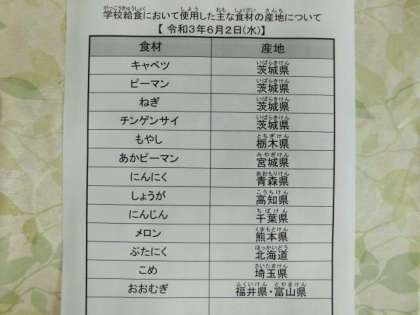 学校給食において使用した主な食材の産地について
【 令和3年6月2日(水)】
食材 産地
キャベツ 茨城県
ピーマン 茨城県
ねぎ 茨城県
チンゲンサイ 茨城県
もやし 栃木県
あかピーマン 宮城県
にんにく 青森県
しょうが 高知県
にんじん 千葉県
メロン 熊本県
ぶたにく 北海道
こめ 埼玉県
おおむぎ 福井県・富山県